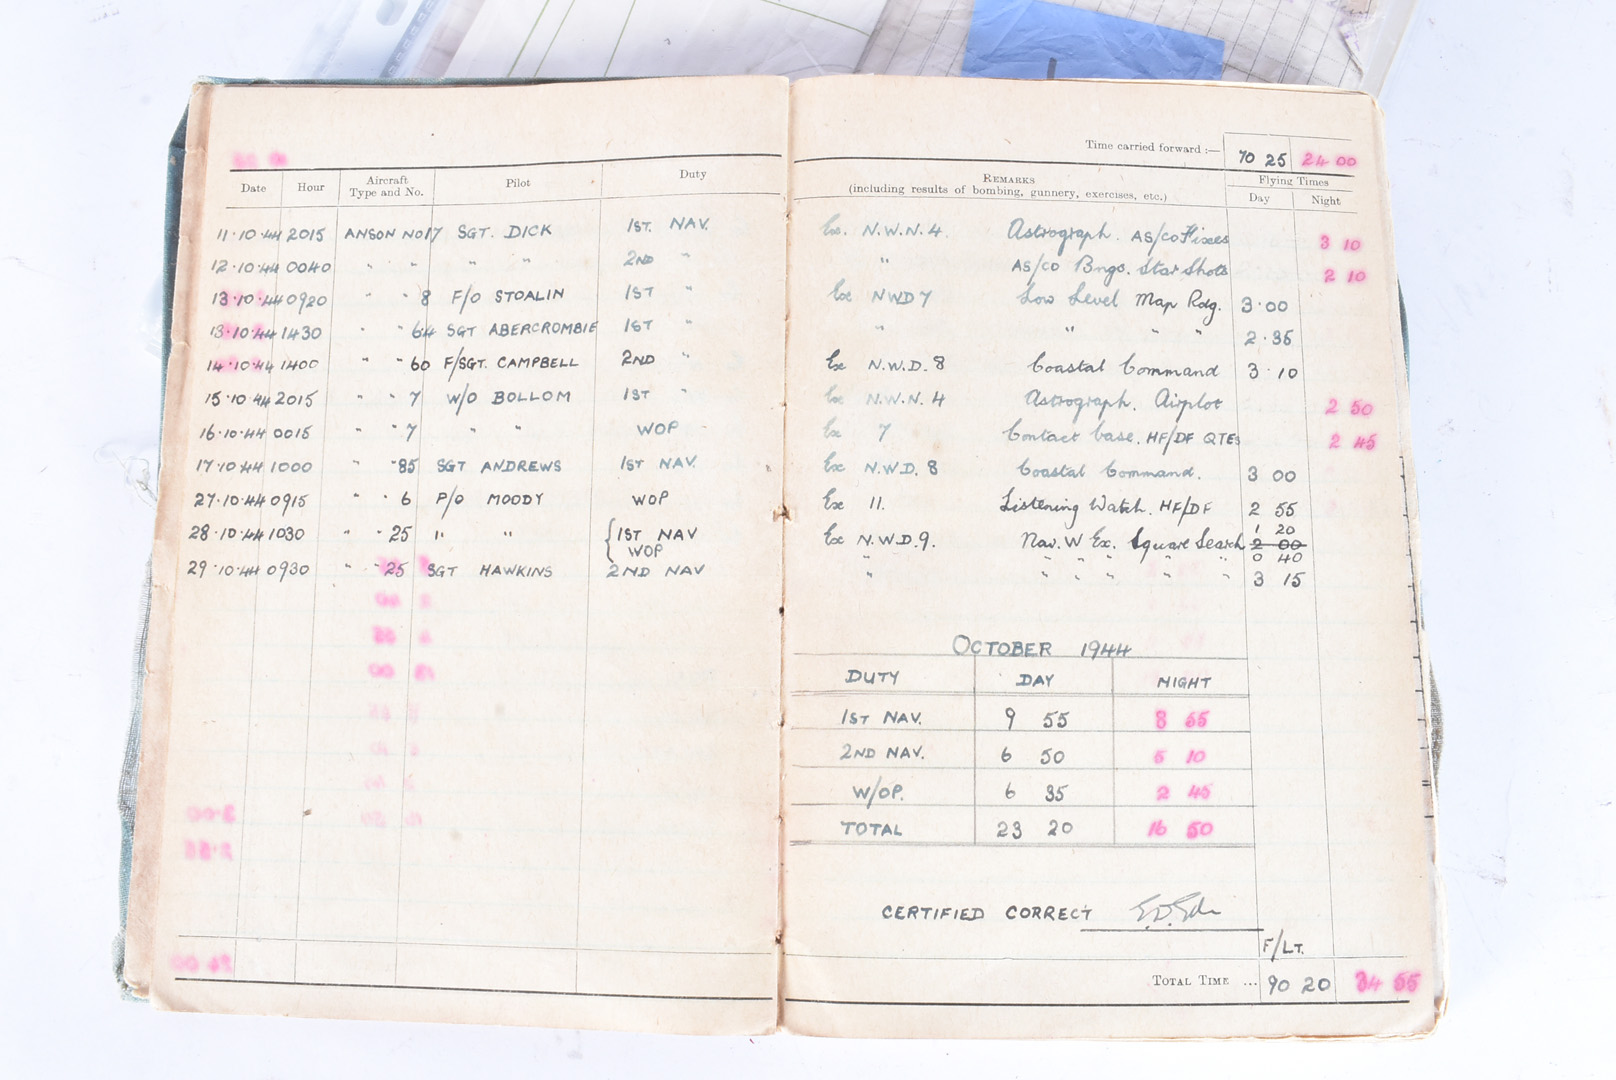 Time carried forward :— 70 25 24 00
Date Hour Aircraft Type and No. Pilot Duty REMARKS (including results of bombing, gunnery, exercises, etc.) Flying Times Day Night
11·10·44 2015 ANSON NO17 SGT. DICK 1ST. NAV. Ex. N.W.N.4. Astrograph. AS/CO Fixes 3 10
12·10·44 0040 " " " " 2ND " " AS/CO Bngs. Star Shots 2 10
13·10·44 0920 " " 8 F/O STOALIN 1ST " Ex NWD7 Low Level Map Rdg. 3·00
13·10·44 1430 " " 64 SGT ABERCROMBIE 1ST " " " " " 2·35
14·10·44 1400 " " 60 F/SGT. CAMPBELL 2ND " Ex N.W.D. 8 Coastal Command 3·10
15·10·44 2015 " " 7 W/O BOLLOM 1ST " Ex N.W.N. 4 Astrograph. Airplot 2 50
16·10·44 0015 " " 7 " " WOP Ex 7 Contact base. HF/DF QTEs 2 45
17·10·44 1000 " " 85 SGT ANDREWS 1ST NAV. Ex N.W.D. 8 Coastal Command. 3 00
27·10·44 0915 " " 6 P/O MOODY WOP Ex 11. Listening Watch. HF/DF 2 55
28·10·44 1030 " " 25 " " { 1ST NAV Ex N.W.D.9. Nav. W Ex. Square Search 1 20
2 00
WOP " " " " " " 0 40
29·10·44 0930 " " 25 SGT HAWKINS 2ND NAV " " " " " " 3 15
OCTOBER 1944
DUTY DAY NIGHT
1ST NAV. 9 55 8 55
2ND NAV. 6 50 5 10
W/OP. 6 35 2 45
TOTAL 23 20 16 50
CERTIFIED CORRECT
F/LT.
TOTAL TIME ... 90 20 34 55